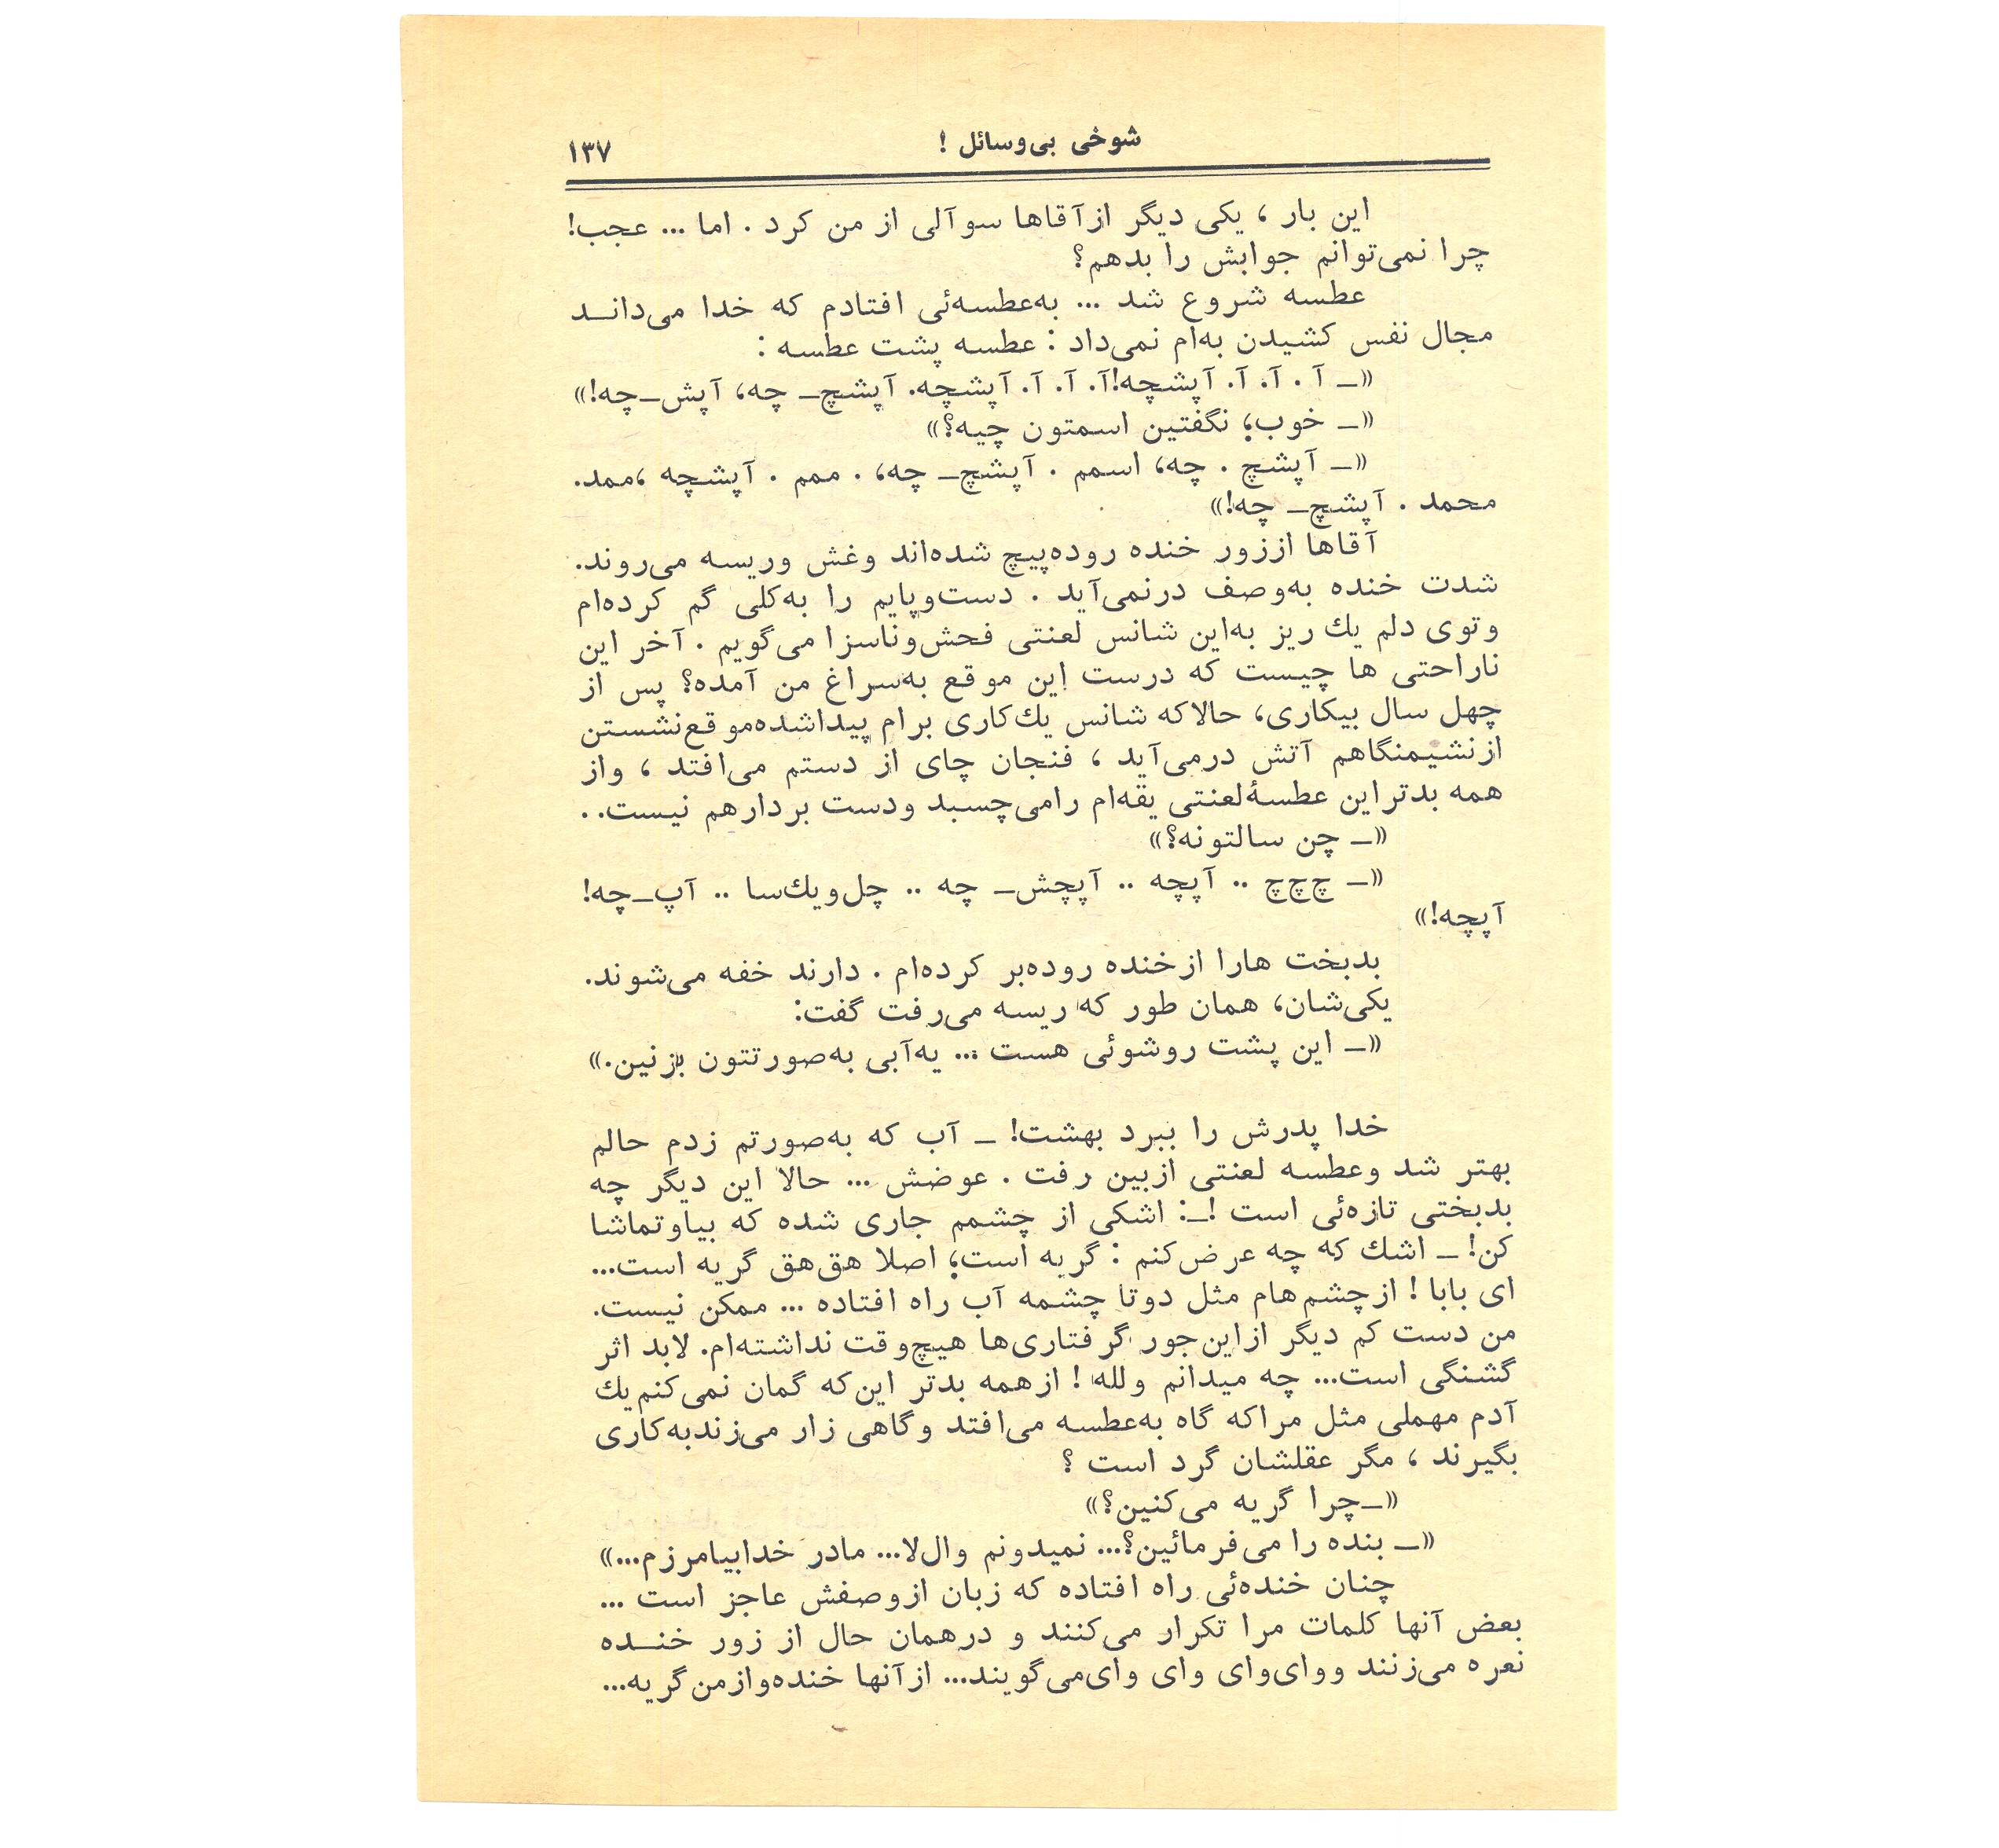 شوخی بی‌وسائل !
۱۳۷
این بار ، یکی دیگر ازآقاها سوآلی از من کرد . اما ... عجب!
چرا نمی‌توانم جوابش را بدهم؟
عطسه شروع شد ... به‌عطسه‌ئی افتادم که خدا می‌دانــد
مجال نفس کشیدن به‌ام نمی‌داد : عطسه پشت عطسه :
«ـ آ . آ. آ. آپشچه!آ. آ. آ. آپشچه. آپشچـ چه، آپش‌ـ‌چه!»
«ـ خوب؛ نگفتین اسمتون چیه؟»
«ـ آپشچ . چه، اسمم . آپشچـ چه، . ممم . آپشچه ،ممد.
محمد . آپشچـ چه!»
آقاها اززور خنده روده‌پیچ شده‌اند وغش وریسه می‌روند.
شدت خنده به‌وصف درنمی‌آید . دست‌وپایم را به‌کلی گم کرده‌ام
وتوی دلم یك ریز به‌این شانس لعنتی فحش‌وناسزا می‌گویم . آخر این
ناراحتی ها چیست که درست این موقع به‌سراغ من آمده؟ پس از
چهل سال بیکاری، حالاکه شانس یك‌کاری برام پیداشده‌موقع‌نشستن
ازنشیمنگاهم آتش درمی‌آید ، فنجان چای از دستم می‌افتد ، واز
همه بدتراین عطسهٔ‌لعنتی یقه‌ام رامی‌چسبد ودست بردارهم نیست. .
«ـ چن سالتونه؟»
«ـ چچچ .. آپچه .. آپچش‌ـ چه .. چل‌ویك‌سا .. آپ‌ـ‌چه!
آپچه!»
بدبخت هارا ازخنده روده‌بر کرده‌ام . دارند خفه می‌شوند.
یکی‌شان، همان طور که ریسه می‌رفت گفت:
«ـ این پشت روشوئی هست ... یه‌آبی به‌صورتتون بزنین.»
خدا پدرش را ببرد بهشت! ـ آب که به‌صورتم زدم حالم
بهتر شد وعطسه لعنتی ازبین رفت . عوضش ... حالا این دیگر چه
بدبختی تازه‌ئی است !ـ: اشکی از چشمم جاری شده که بیاوتماشا
کن! ـ اشك که چه عرض‌کنم : گریه است؛ اصلا هق‌هق گریه است...
ای بابا ! ازچشم‌هام مثل دوتا چشمه آب راه افتاده ... ممکن نیست.
من دست کم دیگر ازاین‌جور گرفتاری‌ها هیچ‌وقت نداشته‌ام. لابد اثر
گشنگی است... چه میدانم ولله ! ازهمه بدتر این‌که گمان نمی‌کنم‌یك
آدم مهملی مثل مراکه گاه به‌عطسه می‌افتد وگاهی زار می‌زندبه‌کاری
بگیرند ، مگر عقلشان گرد است ؟
«ـ‌چرا گریه می‌کنین؟»
«ـ بنده را می‌فرمائین؟... نمیدونم وال‌لا... مادر خدابیامرزم...»
چنان خنده‌ئی راه افتاده که زبان ازوصفش عاجز است ...
بعض آنها کلمات مرا تکرار می‌کنند و درهمان حال از زور خنــده
نعره می‌زنند ووای‌وای وای وای‌می‌گویند... ازآنها خنده‌وازمن‌گریه...